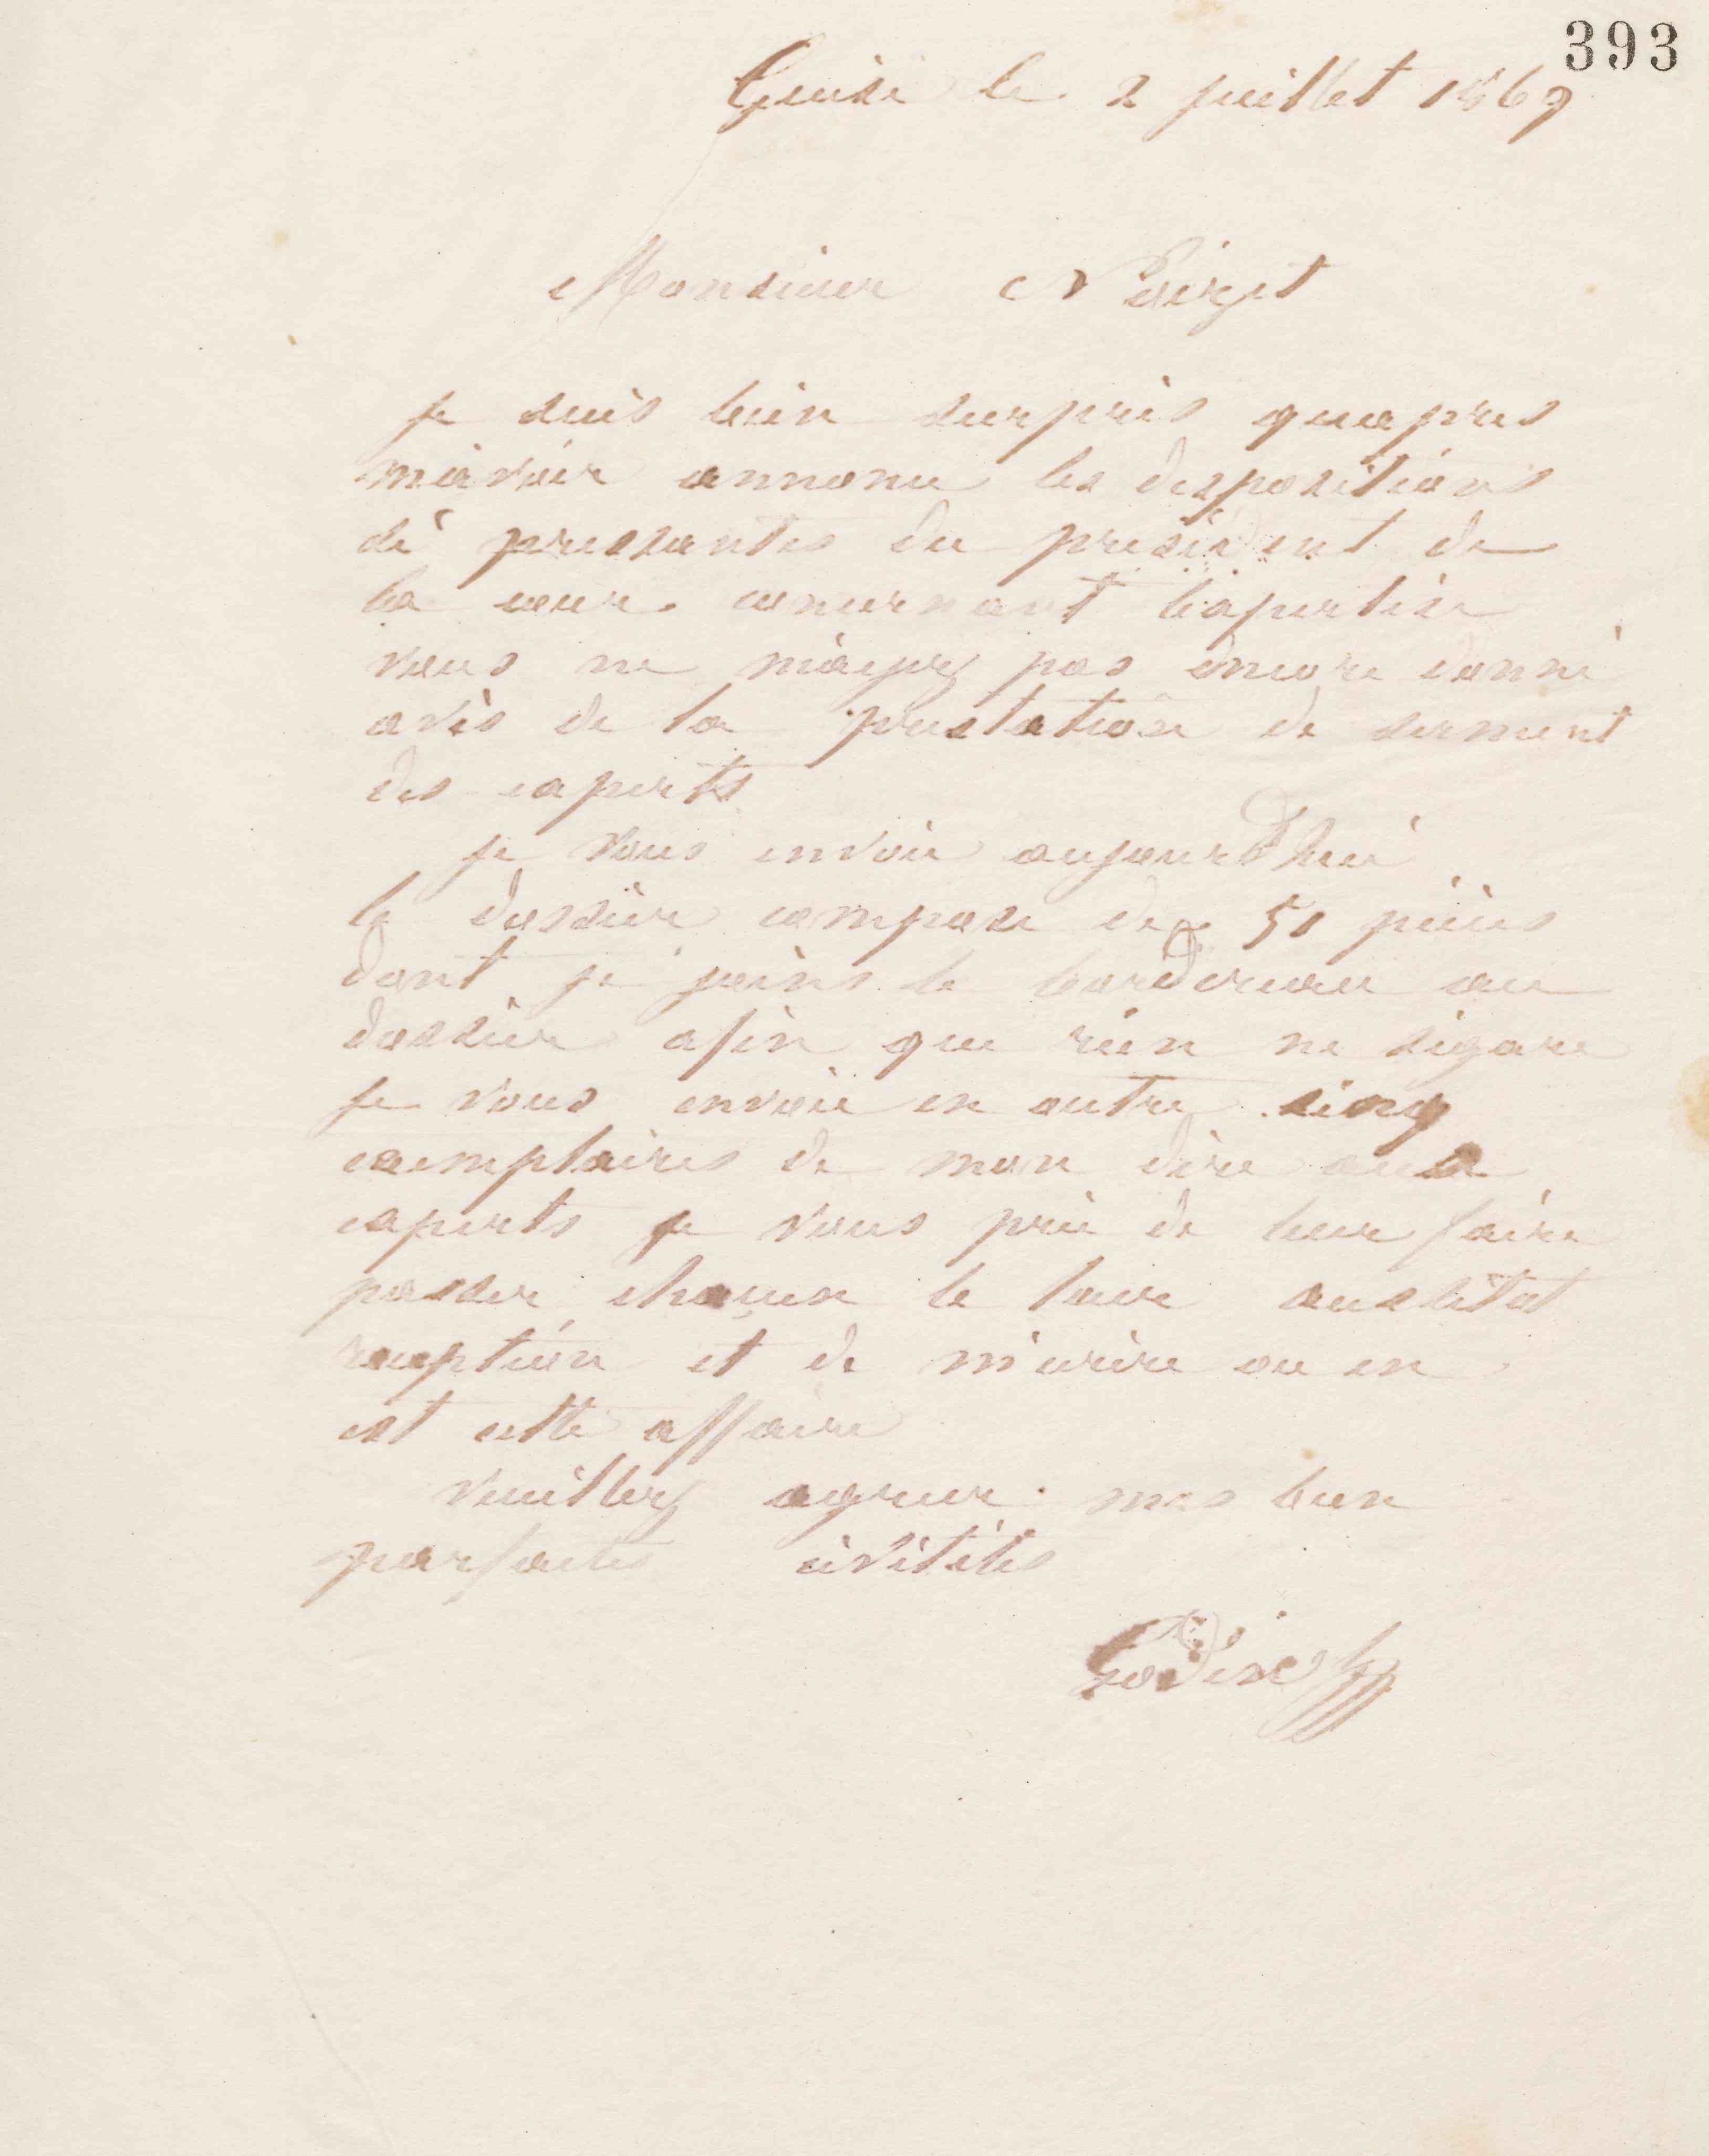 393
Guise le 2 juillet 1869
Monsieur Noirot
je suis bien surpris quapres
m'avoir annoncé les dispositions
si pressantes du president de
la cour concernant l'expertise
vous ne m'ayez pas encore donné
avis de la prestation de serment
des experts
je vous envoie aujourd'hui
le dossier compose de 51 pièces
dont je joins le bordereau au
dossier afin que rien ne s'égare
je vous envoie en outre cinq
exemplaires de mon dire aux
experts je vous prie de leur faire
passer chacun le leur aussitot
reception et de m'ecrire ou en
est cette affaire
veuillez agreer mes bien
parfaites civilités
Godin